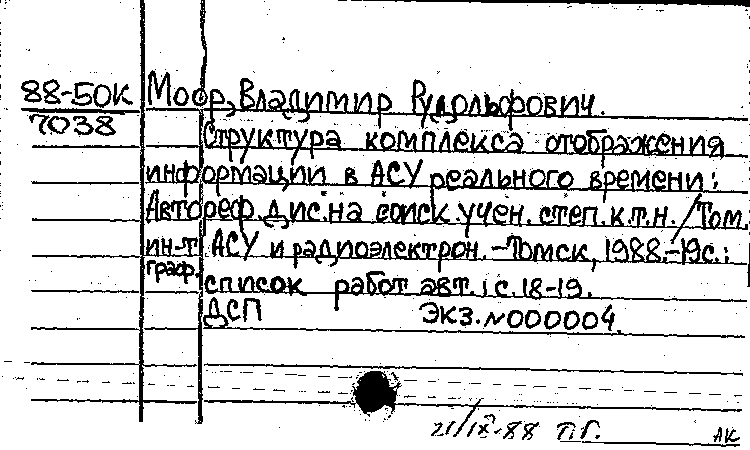 88-50К Моор, Владимир Рудольфович.
7038
Структура комплекса отображения
информации в АСУ реального времени:
Автореф. дис. на соиск. учен. степ. к.т.н. / Том.
ин-т АСУ и радиоэлектрон. - Томск, 1988. - 19 с.:
граф.
список работ авт.: с. 18-19.
ДСП ЭКЗ. №000004.
21/IX-88 П.Г. АК